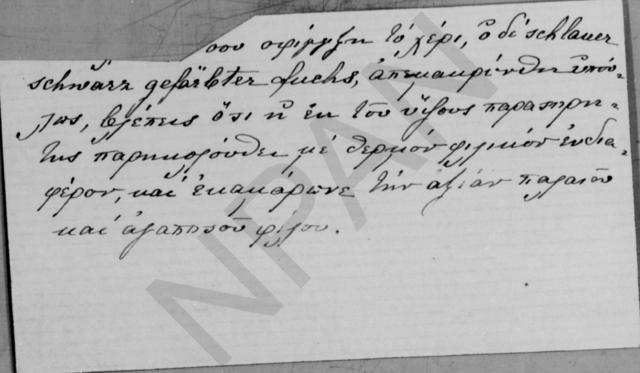 σου σφίγγη τὸ χέρι, ὁ δὲ schlauer
schwärz gefärbter fuchs, ἀπεμακρύνθη ὑπού-
λως, βλέπεις ὅτι ὁ ἐκ τοῦ ὕψους παρατηρη-
τὴς παρηκολούθει μὲ θερμόν φιλικόν ἐνδια-
φέρον, καὶ ἐκαμάρωνε τὴν ἀξίαν παλαιοῦ
καὶ ἀγαπητοῦ φίλου.
NPAN